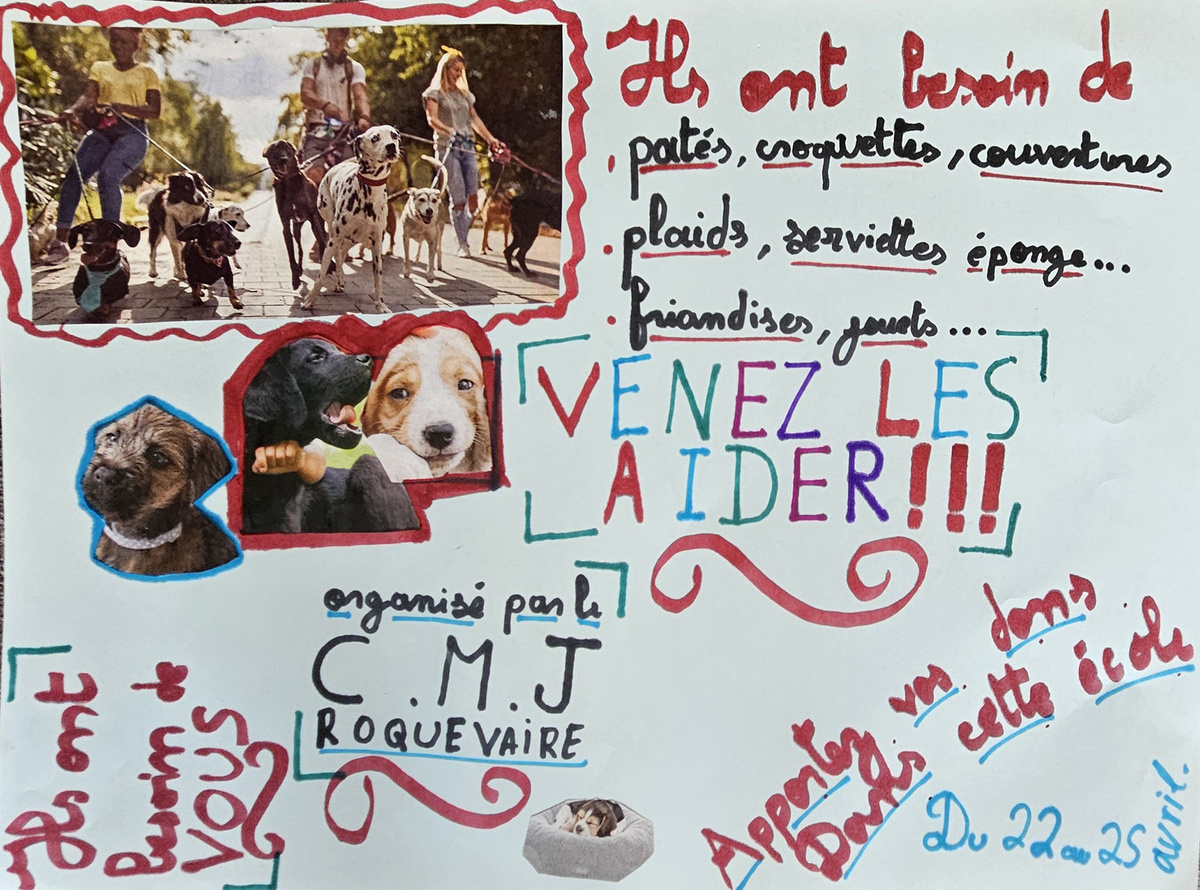 Ils ont besoin de
• patés, croquettes, couvertures
• plaids, serviettes éponge...
• friandises, jouets...
VENEZ LES
AIDER!!!
organisé par le
C.M.J
ROQUEVAIRE
Ils ont
besoin de
VOUS
Apportez vos dons
Dans cette école
Du 22 au 25 avril.